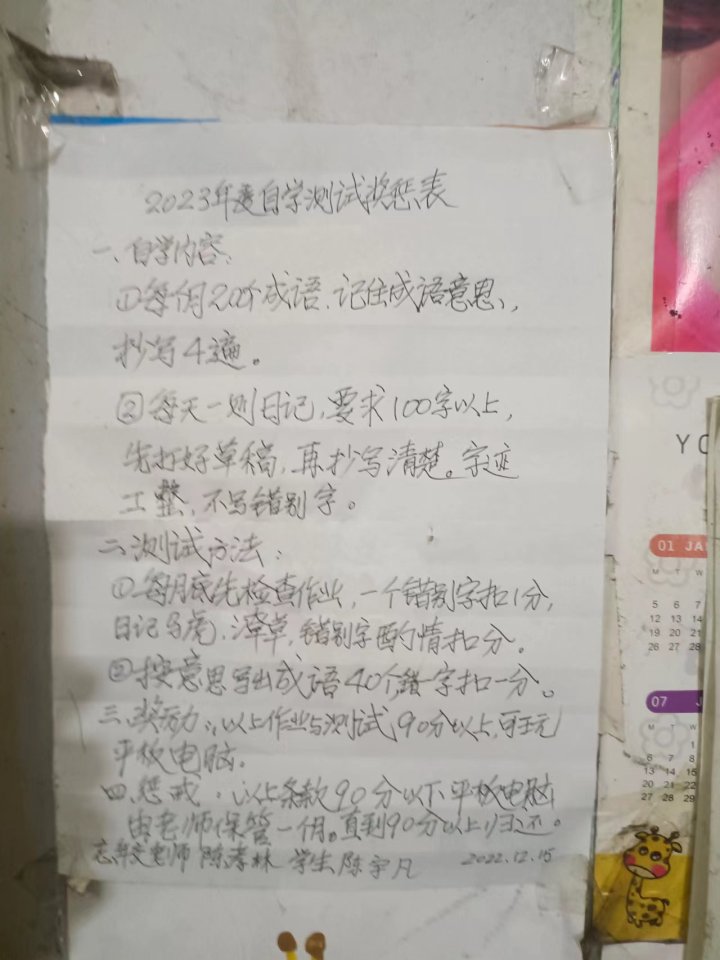 2023年度自学测试奖惩表
一、自学内容:
①每月200个成语、记住成语意思,
抄写4遍。
②每天一则日记,要求100字以上,
先打好草稿,再抄写清楚。字迹
工整,不写错别字。
二、测试方法:
①每月底先检查作业,一个错别字扣1分,
日记马虎、潦草,错别字酌情扣分。
②按意思写出成语40个,错一字扣一分。
三、奖励:以上作业与测试,90分以上,可玩
平板电脑。
四、惩戒:以上条款90分以下平板电脑
由老师保管一个月。直到90分以上归还。
忘年交老师 陈孝林 学生 陈宇凡 2022.12.15
YO
01 JA
M T W
5 6 7
12 13 14
19 20 21
26 27 28
07 J
M T W
1
6 7 8
13 14 15
20 21 22
27 28 29